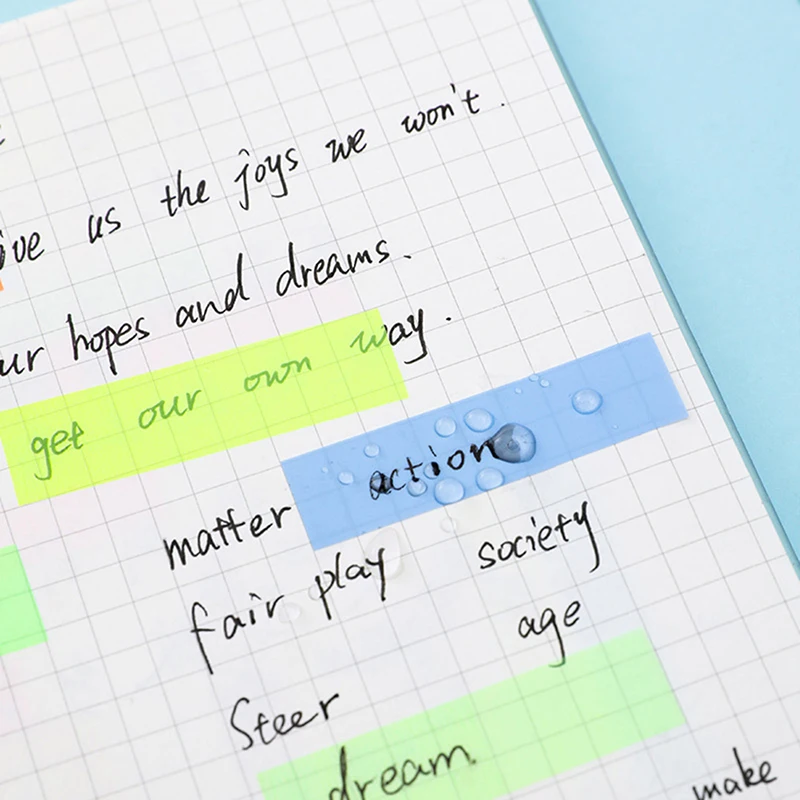 us the joys we won't.
hopes and dreams.
get our own way.
action
matter
fair play society
age
Steer
dream
make